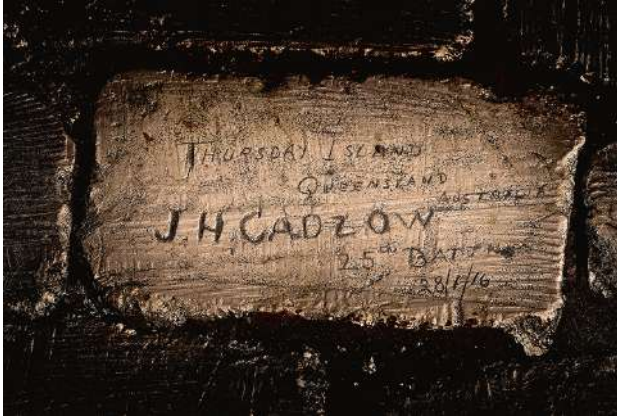 THURSDAY ISLAND
QUEENSLAND
AUSTRALIA
J H CADZOW
25th BATTN
28/1/16